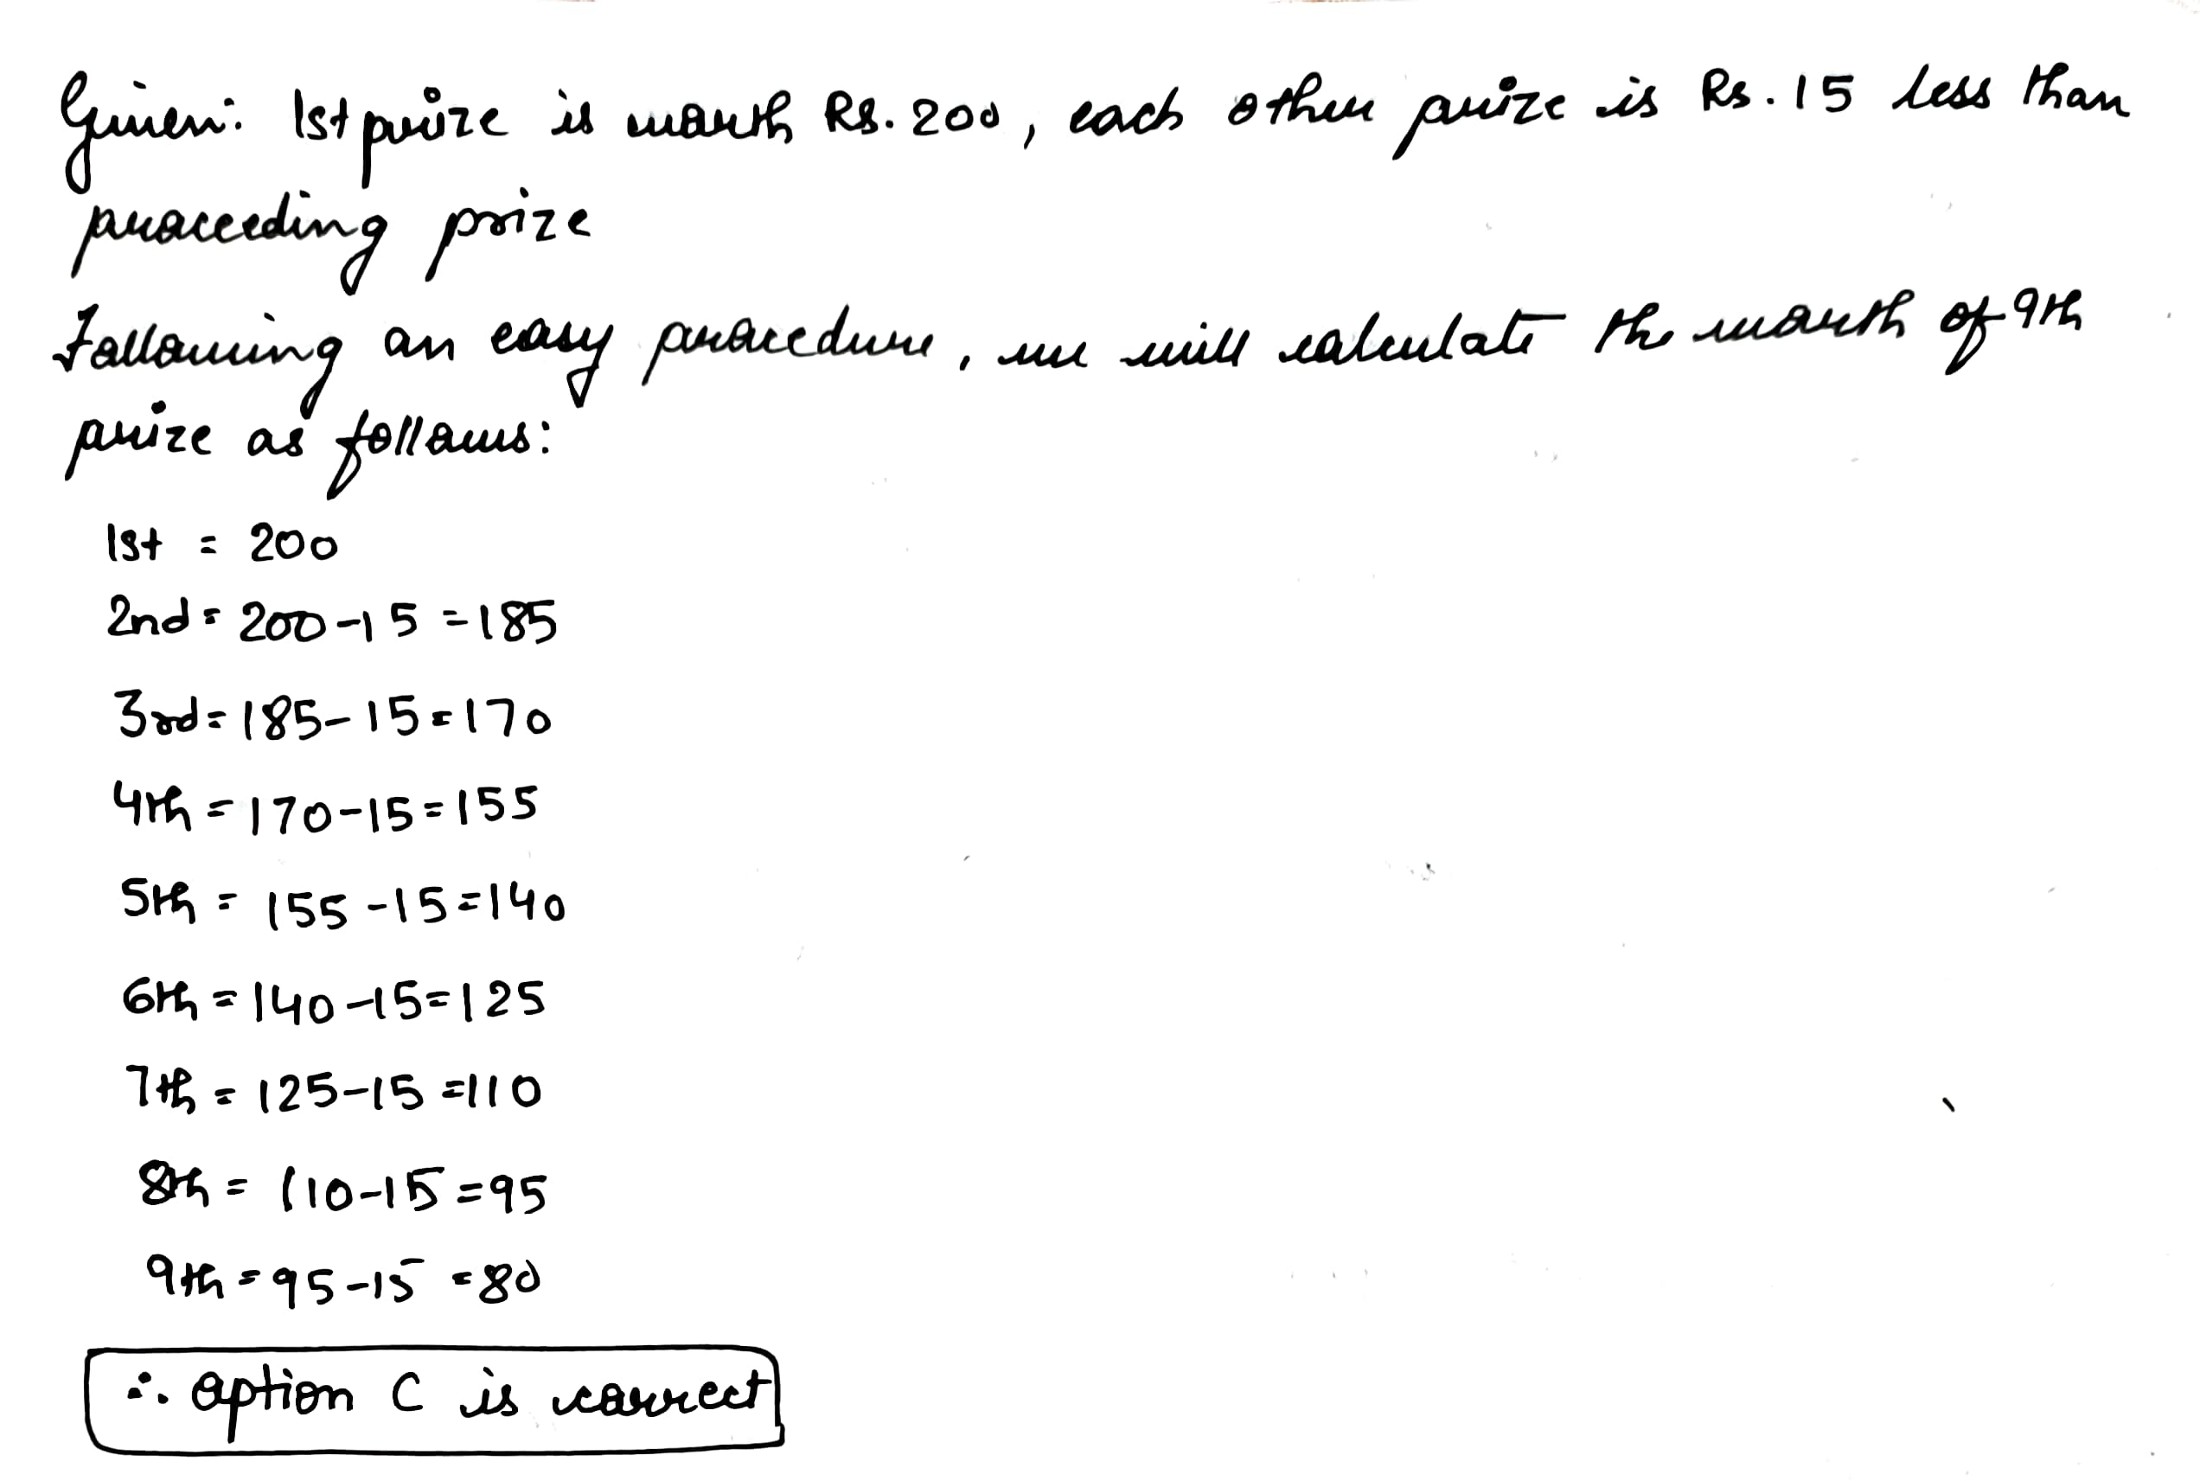 Given: 1st prize is worth Rs. 200, each other prize is Rs. 15 less than
proceeding prize
Following an easy procedure, we will calculate the worth of 9th
prize as follows:
1st = 200
2nd = 200-15 = 185
3rd = 185-15 = 170
4th = 170-15 = 155
5th = 155-15 = 140
6th = 140-15 = 125
7th = 125-15 = 110
8th = 110-15 = 95
9th = 95-15 = 80
∴ option C is correct